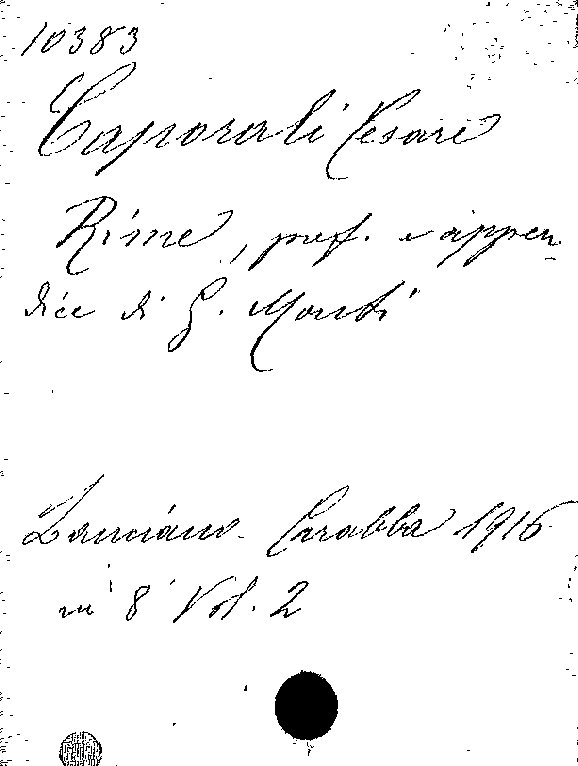 10383
Caporali Cesare
Rime, pref. e appen-
dice di G. Monti
Lanciano - Carabba 1916
in 8° Vol. 2